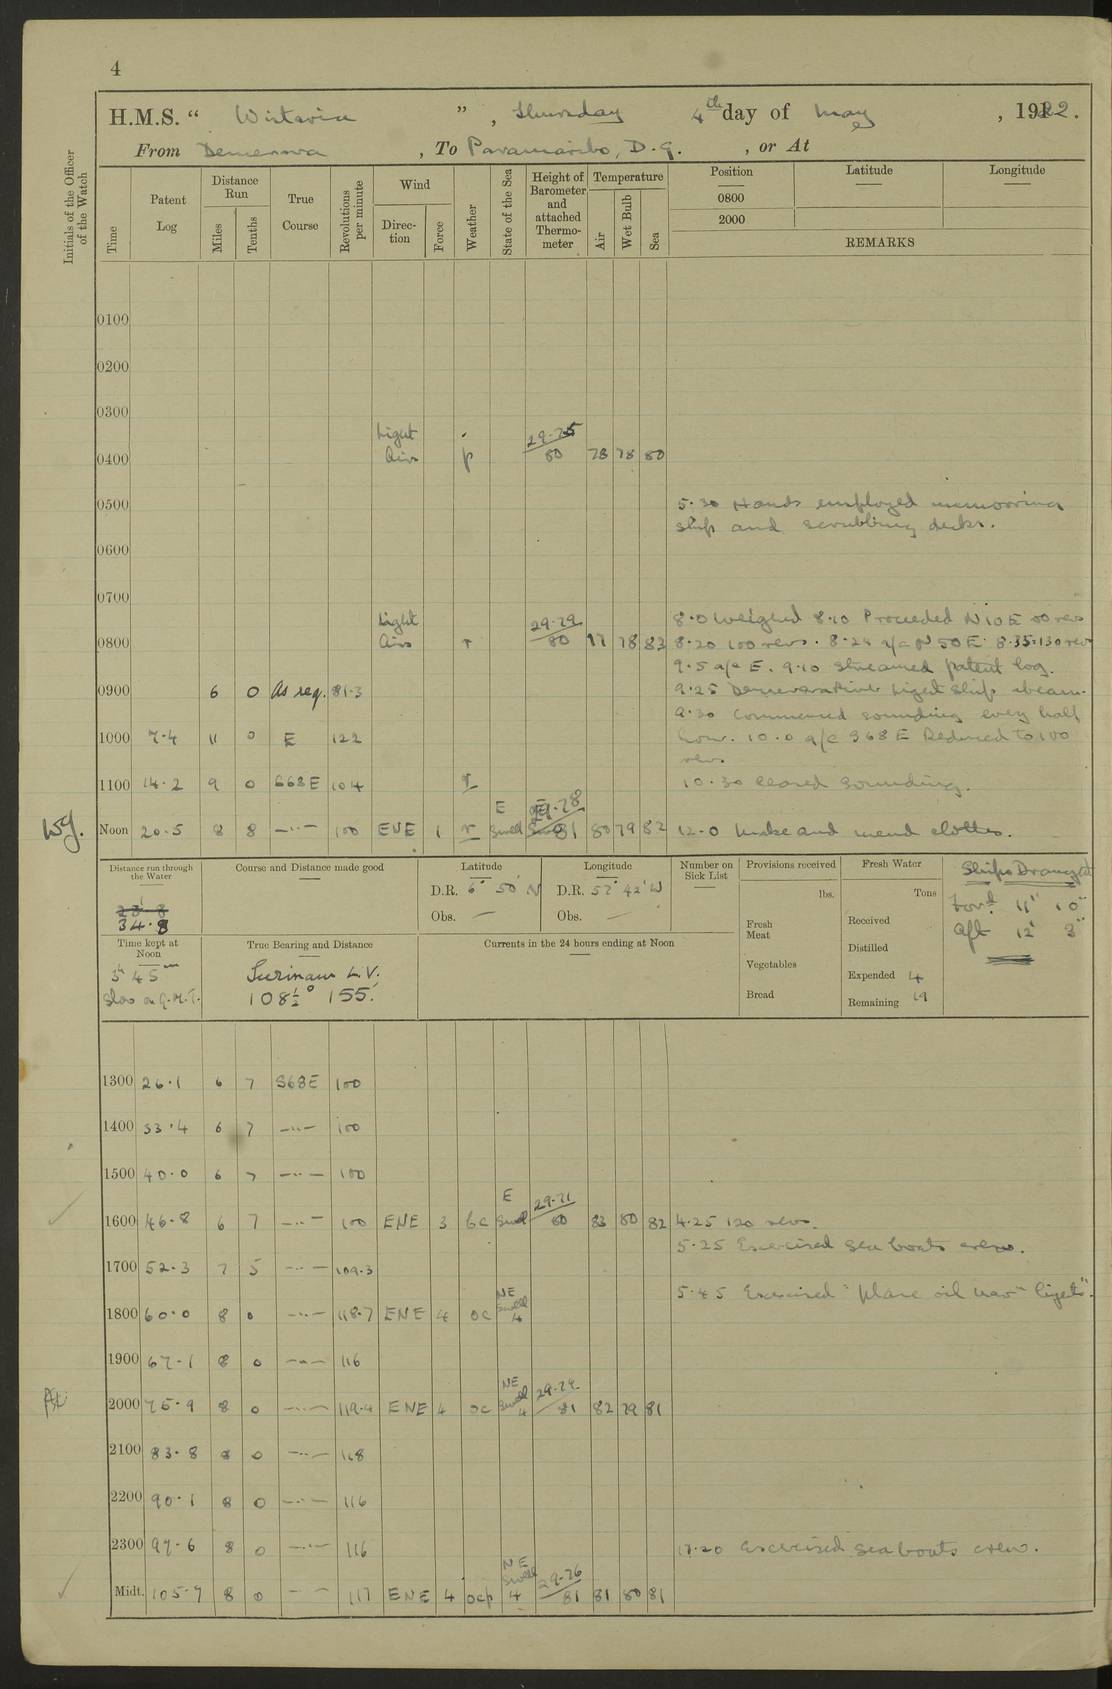 4
H.M.S. " Wistaria ", Thursday 4th day of May, 1922.
From Demerara, To Paramaribo, D.G., or At
Initials of the Officer of the Watch
Time Patent Log Distance Run Miles Tenths True Course Revolutions per minute Wind Direction Force Weather State of the Sea Height of Barometer and attached Thermometer Temperature Air Wet Bulb Sea
Position Latitude Longitude
0800
2000
REMARKS
0100
0200
0300
Light 29.75
0400 Airs p 80 78 78 80
0500 5.30 Hands employed unmooring
ship and scrubbing decks.
0600
0700
Light 29.79 8.0 Weighed 8.10 Proceeded N10E revs
0800 Airs r 80 77 78 83 8.20 100 revs. 8.24 a/c N 50 E. 8.35. 130 revs
9.5 a/c E. 9.10 Streamed patent log.
0900 6 0 As req. 81.3 9.25 Demerara River Light Ship abeam.
9.30 Commenced sounding every half
1000 7.4 11 0 E 122 hour. 10.0 a/c S68E Reduced to 100
revs.
1100 14.2 9 0 S68E 104 r 10.30 Ceased sounding.
E 29.78
WG. Noon 20.5 8 8 —"— 100 ENE 1 r Swell 81 80 79 82 12.0 Make and mend clothes.
Distance run through the Water
34.8
Course and Distance made good
Latitude
D.R. 6° 50' N
Obs. —
Longitude
D.R. 57° 42' W
Obs. —
Number on Sick List
Provisions received
lbs.
Fresh Meat
Vegetables
Bread
Fresh Water
Tons
Received
Distilled
Expended 4
Remaining 19
Ships Draught
Ford. 11' 10"
Aft 12' 3"
Time kept at Noon
3h 45m
Slow on G.M.T.
True Bearing and Distance
Surinam L.V.
108½° 155'.
Currents in the 24 hours ending at Noon
1300 26.1 6 7 S68E 100
1400 33.4 6 7 —"— 100
1500 40.0 6 7 —"— 100
E 29.71
1600 46.8 6 7 —"— 100 ENE 3 bc Swell 80 83 80 82 4.25 120 revs.
5.25 Exercised sea boats crew.
1700 52.3 7 5 —"— 109.3
NE 5.45 Exercised "place oil nav lights".
1800 60.0 8 0 —"— 118.7 ENE 4 oc Swell 4
1900 67.1 8 0 —"— 116
NE 29.74
2000 75.9 8 0 —"— 119.4 ENE 4 oc Swell 4 81 82 79 81
2100 83.8 8 0 —"— 118
2200 90.1 8 0 —"— 116
2300 97.6 8 0 —"— 116 Exercised sea boats crew.
NE Swell 29.76
Midt. 105.7 8 0 —"— 117 ENE 4 ocp 4 81 81 80 81